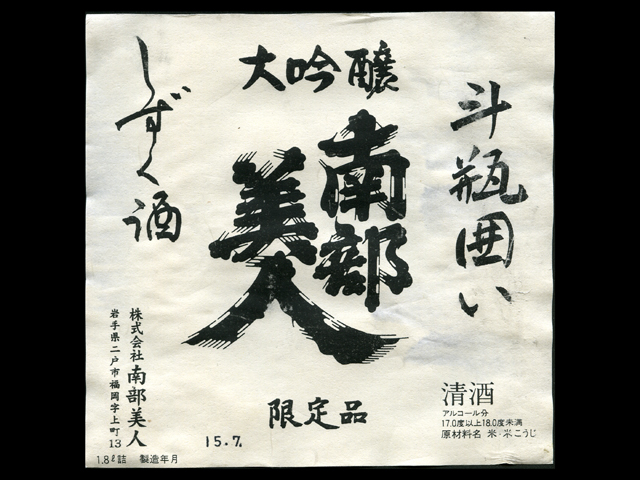 大吟醸
斗瓶囲い
南部
美人
しずく酒
限定品
清酒
アルコール分
17.0度以上18.0度未満
原材料名 米・米こうじ
株式会社 南部美人
岩手県二戸市福岡字上町13
15.7.
1.8ℓ詰 製造年月